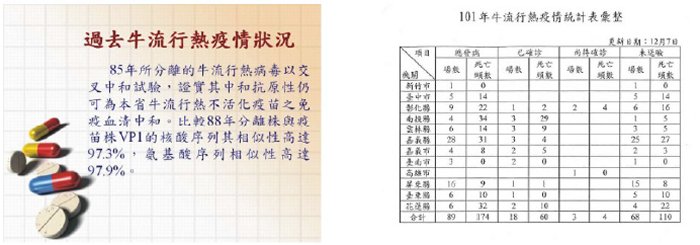 過去牛流行熱疫情狀況
85年所分離的牛流行熱病毒以交
叉中和試驗，證實其中和抗原性仍
可為本省牛流行熱不活化疫苗之免
疫血清中和。比較88年分離株與疫
苗株VP1的核酸序列其相似性高達
97.3%，氨基酸序列相似性高達
97.9%。
101年牛流行熱疫情統計表彙整
更新日期：12月7日
項目 總發病 已確診 尚待確診 未送驗
機關 場數 死亡頭數 場數 死亡頭數 場數 死亡頭數 場數 死亡頭數
新竹市 1 0 1 0
臺中市 5 14 5 14
彰化縣 9 22 1 2 2 4 6 16
南投縣 4 34 3 29 1 5
雲林縣 6 14 3 9 3 5
嘉義縣 28 31 3 4 25 27
嘉義市 4 8 2 5 2 3
臺南市 3 0 2 0 1 0
高雄市 1 0
屏東縣 16 9 1 1 15 8
臺東縣 6 10 1 0 5 10
花蓮縣 6 32 2 10 4 22
合計 89 174 18 60 3 4 68 110